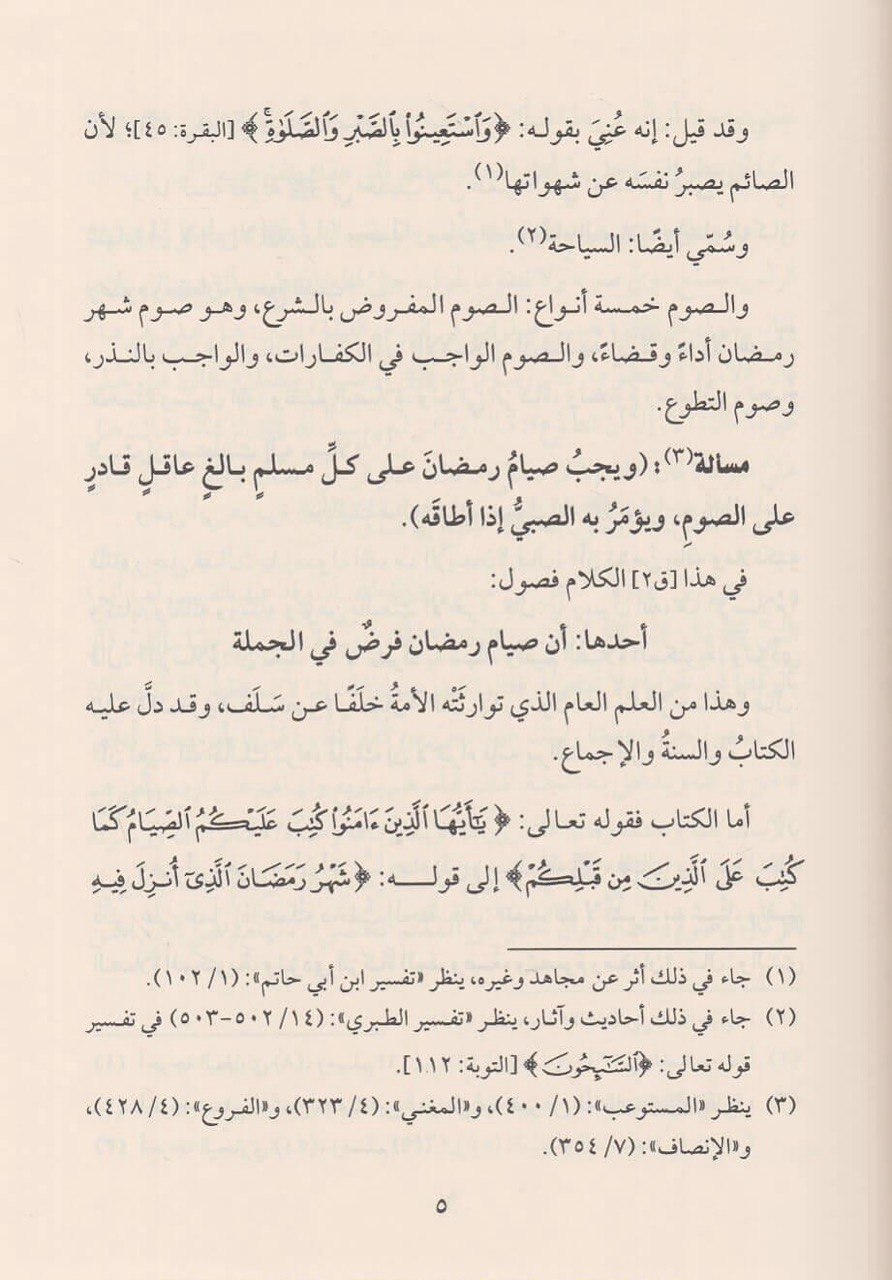 وقد قيل: إنه عُنِيَ بقوله: ﴿وَٱسْتَعِينُوا۟ بِٱلصَّبْرِ وَٱلصَّلَوٰةِۚ﴾ [البقرة: ٤٥]؛ لأن
الصائم يصبرُ نفسَه عن شهواتها(١).
وسُمّي أيضًا: السياحة(٢).
والصوم خمسة أنواع: الصوم المفروض بالشرع، وهو صوم شهر
رمضان أداءً وقضاءً، والصوم الواجب في الكفارات، والواجب بالنذر،
وصوم التطوع.
مسالة(٣): (ويجبُ صيامُ رمضانَ على كلِّ مسلمٍ بالغٍ عاقلٍ قادرٍ
على الصومِ، ويؤمَرُ به الصبيُّ إذا أطاقَه).
في هذا [ق٢] الكلام فصول:
أحدها: أن صيام رمضان فرضٌ في الجملة
وهذا من العلم العام الذي توارثَتْه الأمةُ خلَفًا عن سَلَف، وقد دلَّ عليه
الكتابُ والسنةُ والإجماع.
أما الكتاب فقوله تعالى: ﴿يَـٰٓأَيُّهَا ٱلَّذِينَ ءَامَنُوا۟ كُتِبَ عَلَيْكُمُ ٱلصِّيَامُ كَمَا
كُتِبَ عَلَى ٱلَّذِينَ مِن قَبْلِكُمْ﴾ إلى قوله: ﴿شَهْرُ رَمَضَانَ ٱلَّذِىٓ أُنزِلَ فِيهِ
(١) جاء في ذلك أثر عن مجاهد وغيره، ينظر «تفسير ابن أبي حاتم»: (١/ ١٠٢).
(٢) جاء في ذلك أحاديث وآثار، ينظر «تفسير الطبري»: (١٤/ ٥٠٢-٥٠٣) في تفسير
قوله تعالى: ﴿ٱلسَّـٰٓئِحُونَ﴾ [التوبة: ١١٢].
(٣) ينظر «المستوعب»: (١/ ٤٠٠)، و«المغني»: (٤/ ٣٢٣)، و«الفروع»: (٤/ ٤٢٨)،
و«الإنصاف»: (٧/ ٣٥٤).
٥